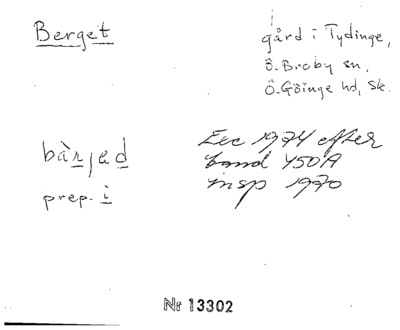 Berget
gård i Tydinge,
Ö. Broby sn,
Ö. Göinge hd, Sk.
bàrjed
prep. i
Eec 1974 efter
band 450A
insp 1970
Nr 13302